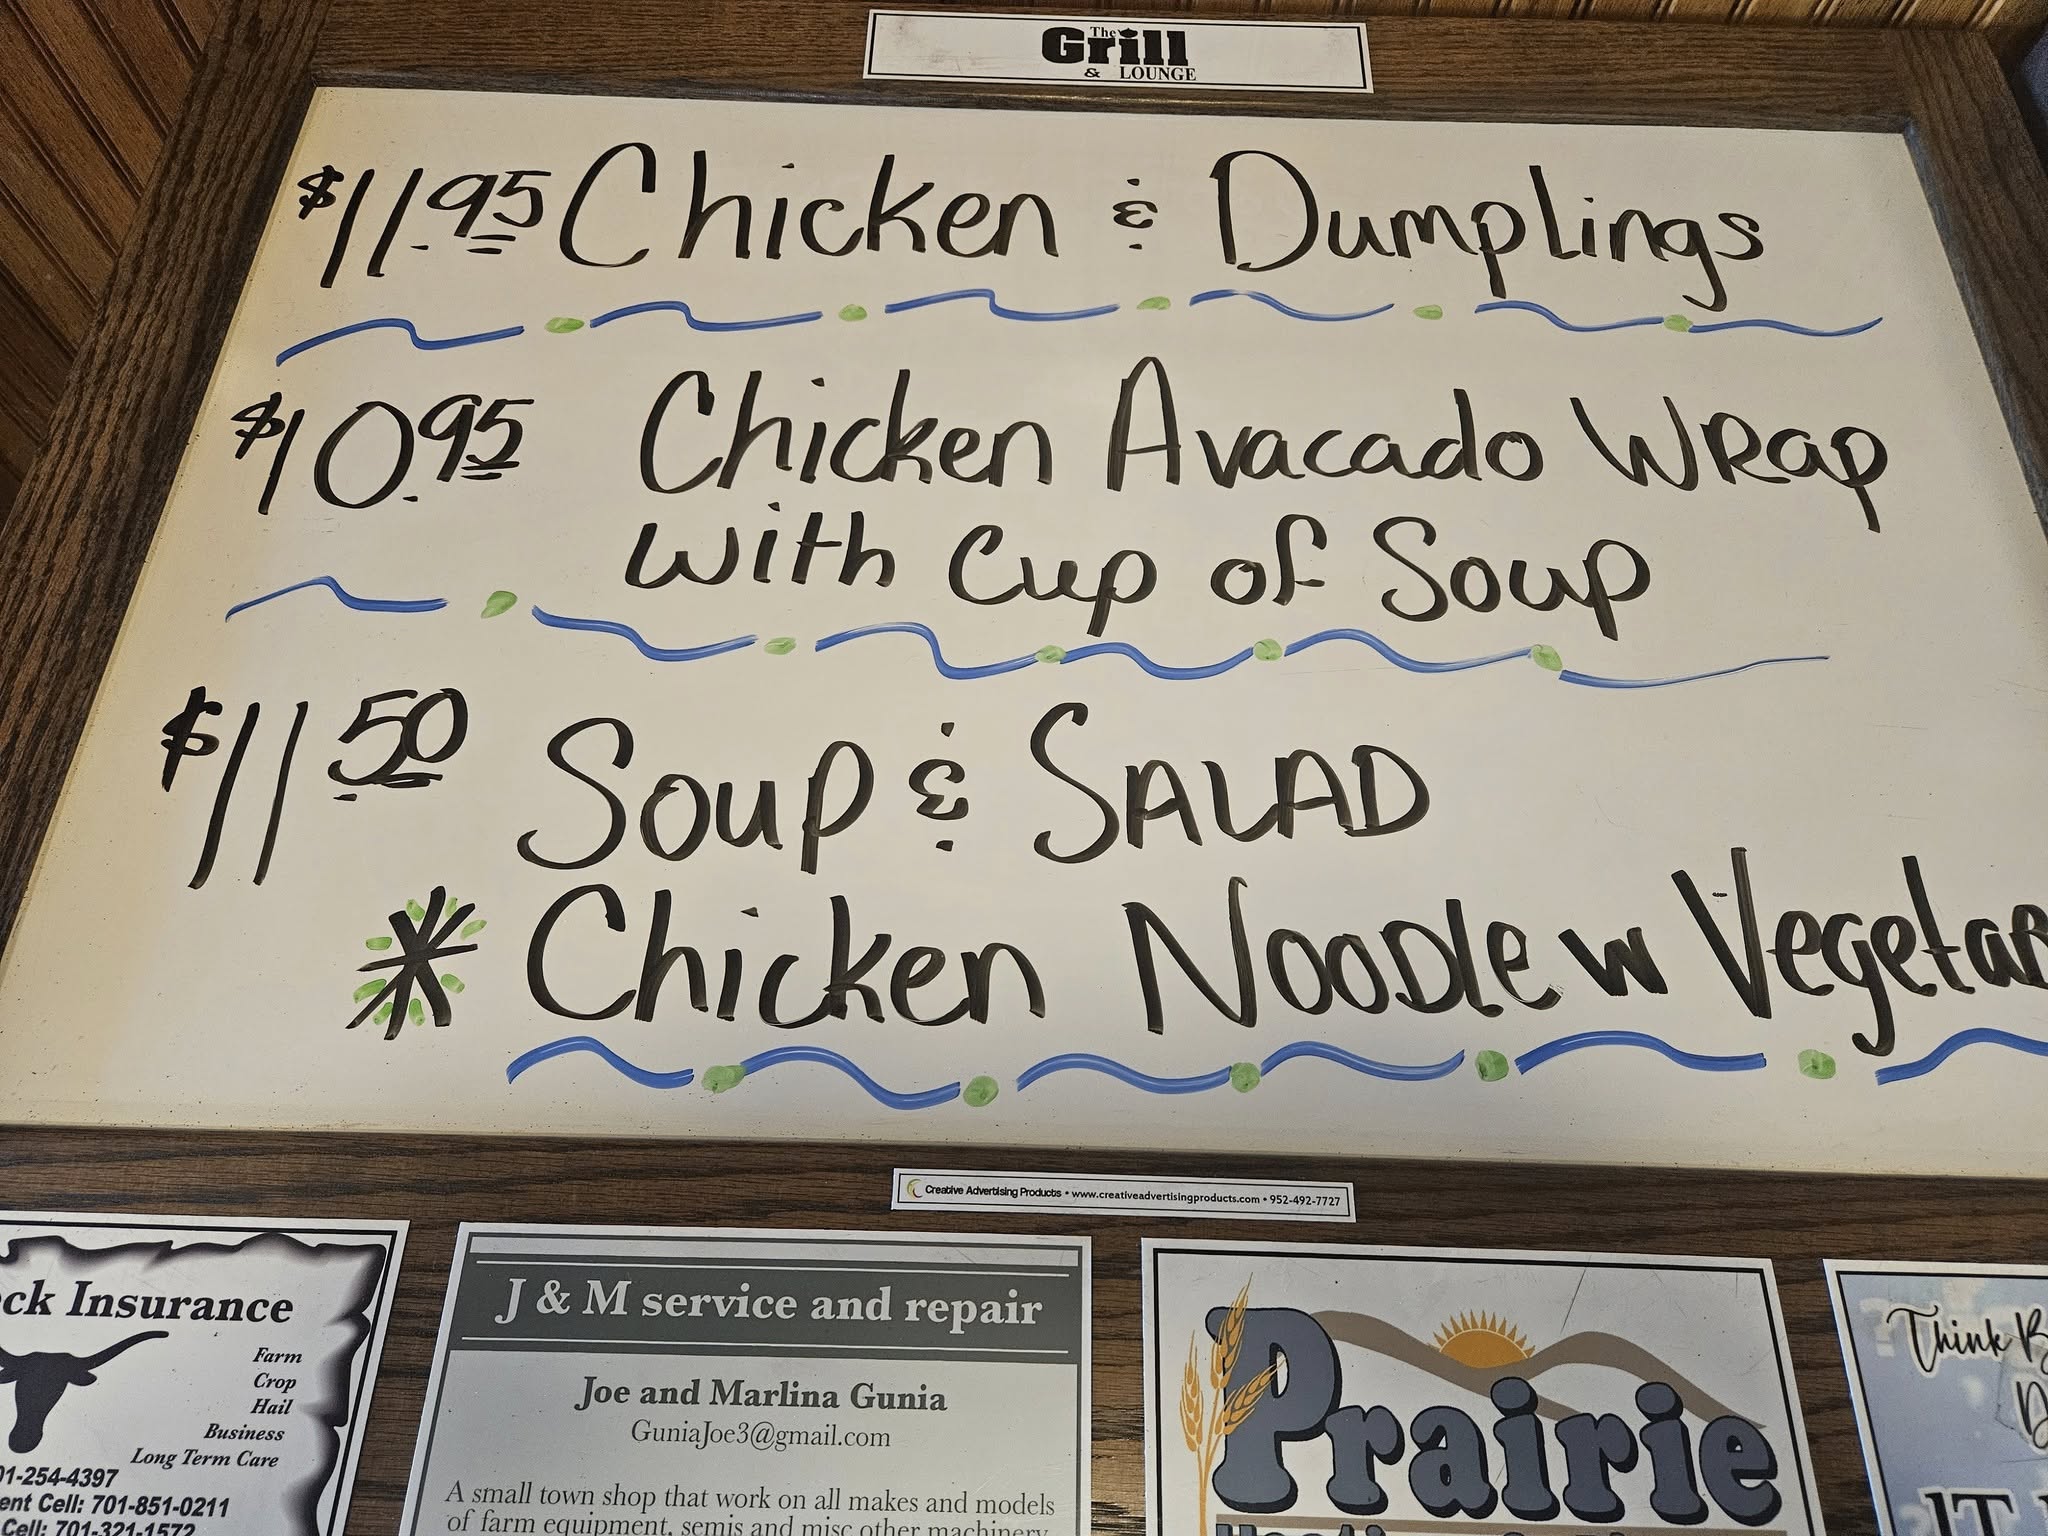 The
Grill
& LOUNGE
$11.95 Chicken & Dumplings
$10.95 Chicken Avacado Wrap
with Cup of Soup
$11.50 Soup & SALAD
* Chicken Noodle w Vegetab
Creative Advertising Products • www.creativeadvertisingproducts.com • 952-492-7727
ck Insurance
Farm
Crop
Hail
Business
Long Term Care
01-254-4397
ent Cell: 701-851-0211
Cell: 701-321-1572
J & M service and repair
Joe and Marlina Gunia
GuniaJoe3@gmail.com
A small town shop that work on all makes and models
of farm equipment, semis and misc other machinery
Prairie
Think
IT